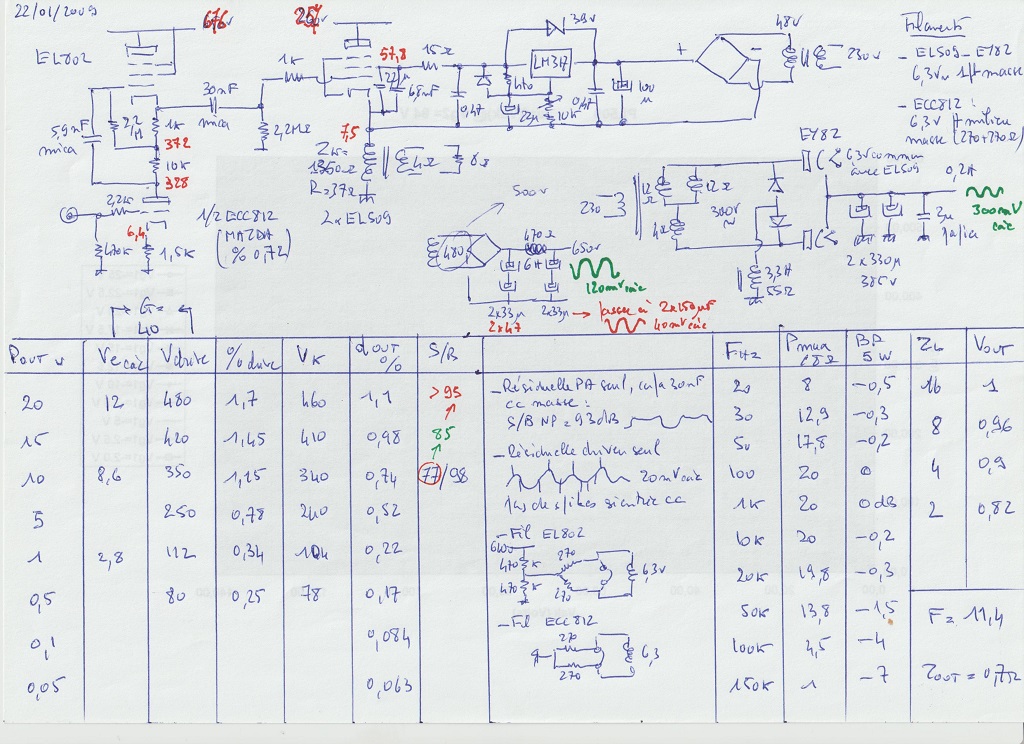 22/01/2009
EL802
676v
257v
57,8
7,5
1K
30nF
mica
2,2M
1K
372
10K
328
5,9nF
mica
2,2MΩ
15Ω
22µ
68nF
0,47
39v
LM317
470
22µ
10K
0,47
100
µ
+
-
48V
230v
Filaments
- EL509 - EY82
6,3V~ 1 pt masse
- ECC812 :
6,3V pt milieu
masse (270+270Ω)
1350Ω
R=37Ω
4Ω
8Ω
2xEL509
2,2K
470K
6,4
1,5K
1/2 ECC812
(MAZDA
% 0,72)
500v
480
470Ω
6H
650v
120mV càc
2x33µ
2x33µ
2x47
→ passe à 2x150µF
40mV càc
230
12Ω
12Ω
4Ω
300V
~
3,3H
55Ω
EY82
6,3V commun
avec EL509
0,2A
300mV
càc
2x330µ
385V
2µ
G=
40
POUT W
Ve càc
Vdrive
% drive
VK
dOUT
%
S/B
FHz
Pmax
8Ω
BP
5W
ZL
VOUT
20 12 480 1,7 460 1,1 >95
15 420 1,45 410 0,98 85
10 8,6 350 1,15 340 0,74 77/98
5 250 0,78 240 0,52
1 2,8 112 0,34 104 0,22
0,5 80 0,25 78 0,17
0,1 0,084
0,05 0,063
- Résiduelle PA seul, in/à 30nF
cc masse :
S/B NP = 93dB
- Résiduelle driver seul
20mV càc
pas de spikes si entrée cc
- Fil EL802
470K
470K
270
270
6,3v
- Fil ECC812
270
270
6,3
20 8 -0,5
30 12,9 -0,3
50 17,8 -0,2
100 20 0
1K 20 0dB
10K 20 -0,2
20K 19,8 -0,3
50K 13,8 -1,5
100K 4,5 -4
150K 1 -7
16 1
8 0,96
4 0,9
2 0,82
F = 11,4
ZOUT = 0,75Ω